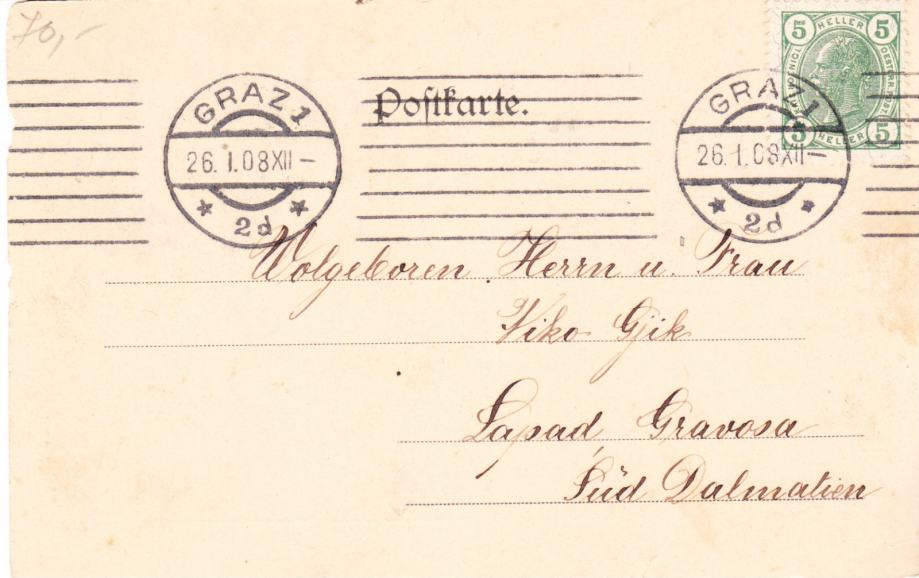 70,-
GRAZ 1
26.1.08 XII-
2d
Postkarte.
GRAZ 1
26.1.08 XII-
2d
5 HELLER 5
5 HELLER 5
Wolgeboren Herrn u. Frau
Viko Gjik
Lapad, Gravosa
Süd Dalmatien